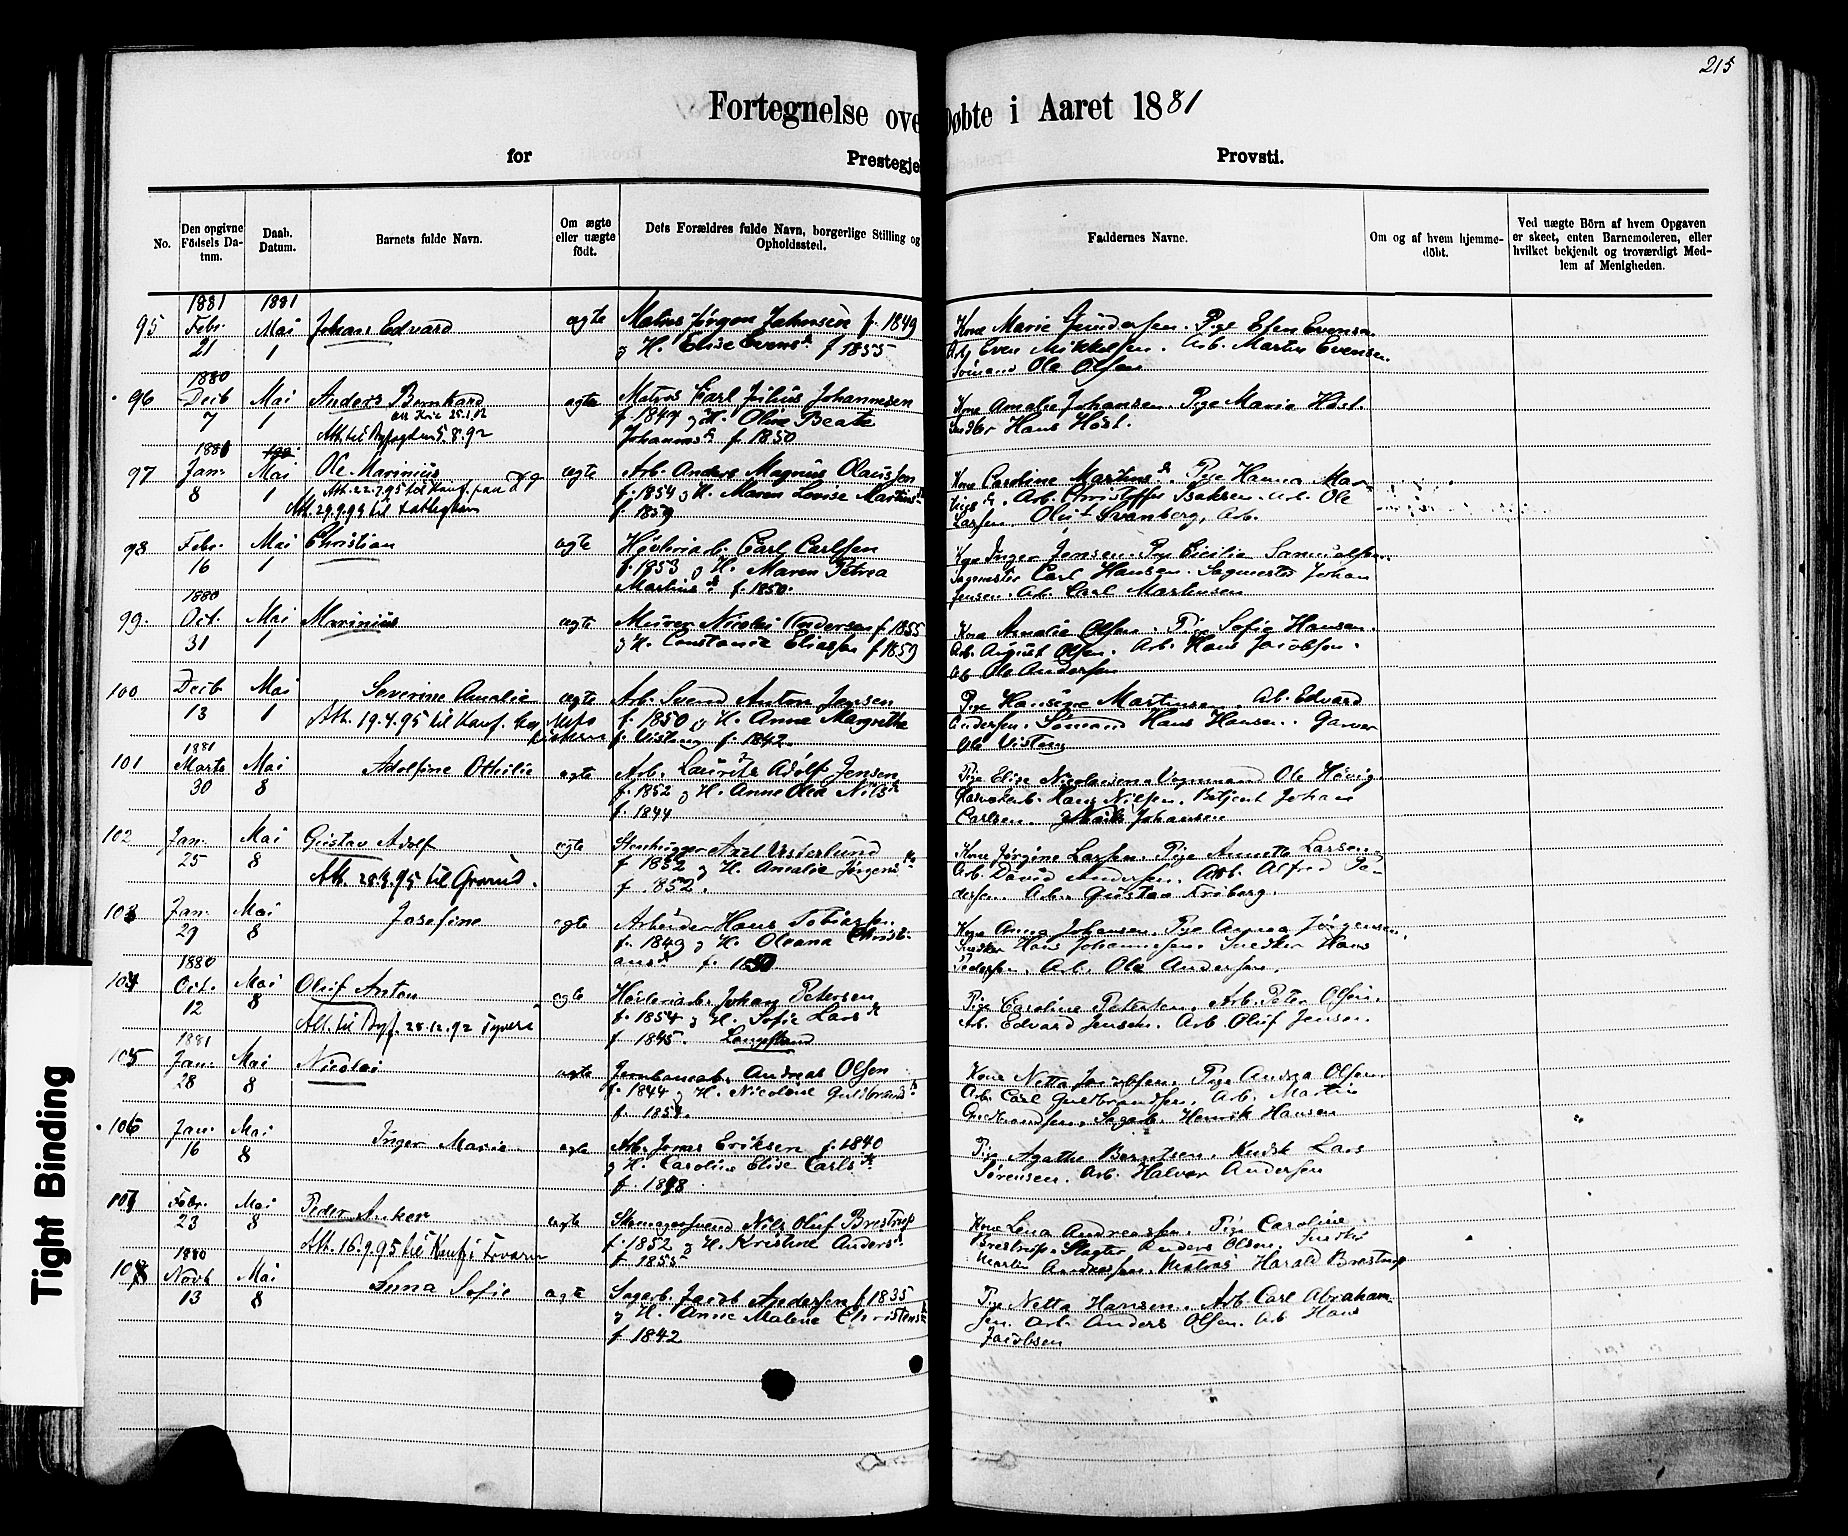 215
Fortegnelse ove Døbte i Aaret 1881
for Prestegjel Provsti.
No.
Den opgivne Födsels Datum.
Daab. Datum.
Barnets fulde Navn.
Om ægte eller uægte födt.
Dets Forældres fulde Navn, borgerlige Stilling og Opholdssted.
Faddernes Navne.
Om og af hvem hjemmedöbt.
Ved uægte Börn af hvem Opgaven er skeet, enten Barnemoderen, eller hvilket bekjendt og troværdigt Medlem af Menigheden.
1881 1881
95 Febr. 21 Mai 1 Johan Edvard ægte Matros Jörgen Jahnsen f. 1849
g H. Elise Evensd f 1855
Kone Marie Gundersen. Pige Efen Evensen
Arb Even Mikkelsen. Arb. Martin Evensen
Sömand Ole Olsen
1880
96 Decb 7 Mai 1 Anders Bernhard ægte Matros Carl Julius Johannesen
f. 1847 g H. Oline Beate
Johannesd f. 1850
Att. til Byfogden 5.8.92
Kone Amalie Johansen. Pige Marie Höst.
Snedker Hans Höst.
1881
97 Jan. 8 Mai 1 Ole Marinius ægte Arb. Anders Magnus Olaussen
f. 1854 g H. Maren Lovise Martinsd
f 1859
Att. 22.7.95 til Konf.
Att. 29.9.99 til
Kone Caroline Martinsd. Pige Hanna Mar-
tinsd. Arb. Christoffer Isaksen. Arb. Ole
Larsen Oluf Svanberg, Arb.
98 Febr. 16 Mai 1 Christian ægte Hövleriarb. Carl Carlsen
f. 1853 g H. Maren Petrea
Martinsd f. 1850.
Kone Inger Jensen. Pige Cicilie Samuelsen.
Sagmester Carl Hansen. Sagmester Johan
Jensen. Arb. Carl Martinsen
1880
99. Oct. 31 Mai 1 Marinius ægte Murer Nicolai Andersen f 1855
g H. Constance Eliassen f 1859
Kone Amalie Olsen. Pige Sofie Hansen.
Arb. August Olsen. Arb. Hans Jacobsen.
Arb Ole Andersen
100 Decb 13 Mai 1 Severine Amalie ægte Arb. Svend Anton Jensen
f. 1850 g H. Anne Margrethe
f. Visten f. 1842.
Att. 19.4.95 til Konf.
Pige Hansine Martinsen. Arb. Edvard
Andersen. Sömand Hans Hansen. Garver
Ole Visten
1881
101 Marts 30 Mai 8 Adolfine Othilie ægte Arb. Laurits Adolf Jensen
f. 1852 g H. Anne Olea Nilsd
f. 1844
Pige Elise Nicolaisen. Vognmand Ole Hövig.
Hans Nilsen. Betjent Johan
Carlsen. Johansen
102 Jan. 25 Mai 8 Gustav Adolf ægte Stenhugger Axel Vesterlund
f 1852 g H. Amalie Jörgensd
f. 1852.
Kone Jörgine Larsen. Pige Annette Larsen.
Arb. David Andersen. Arb. Alfred Pe-
dersen. Arb. Gustav Friberg.
103 Jan. 29 Mai 8 Josefine ægte Arbeider Hans Tobiasen
f. 1849 g H. Oleana Christi-
ansd f. 1850
Kone Anna Johansen. Pige Anna Jörgensen.
Snedker Hans Johannesen. Snedker Hans
Pedersen. Arb. Ole Andersen.
1880
104 Oct. 12 Mai 8 Oluf Anton ægte Hövleriarb. Johan Petersen
f. 1854 g H. Sofie Larsd
f 1845. Langestrand
Att. til Byf. 28.12.92 Tyveri
Pige Caroline Petersen. Arb. Peter Olsen.
Arb. Edvard Jensen. Arb Oluf Jensen.
1881
105 Jan. 28 Mai 8 Nicolai ægte Jernbanearb. Andreas Olsen
f. 1844 g H. Nicoline Guldbrandsd
f. 1854.
Kone Netta Jacobsen. Pige Andrea Olsen.
Arb. Carl Guldbrandsen. Arb. Martin
Gulbrandsen. Sagarb. Henrik Hansen
106 Jan. 16 Mai 8 Inger Marie ægte Arb. Jonas Eriksen f. 1840
g H. Caroline Elise Carlsd
f. 1848.
Pige Agathe Berntsen. Kudsk Lars
Sörensen. Arb. Halvor Andersen
107 Febr. 23 Mai 8 Peder Anker ægte Skomagersvend Nils Oluf Brestrup
f. 1852 g H. Kristine Andersd
f 1855
Kone Lena Andreassen. Pige Caroline
Brestrup. Slagter Anders Olsen. Snedker
Martin Andreassen. Matros Harald Brestrup
1880
108 Novb 13 Mai 8 Anna Sofie ægte Sagarb. Jacob Andersen f 1835
g H. Anne Malene Christensd
f. 1842
Pige Netta Hansen. Arb. Carl Abraham-
sen. Arb. Anders Olsen. Arb Hans
Jacobsen
Tight Binding